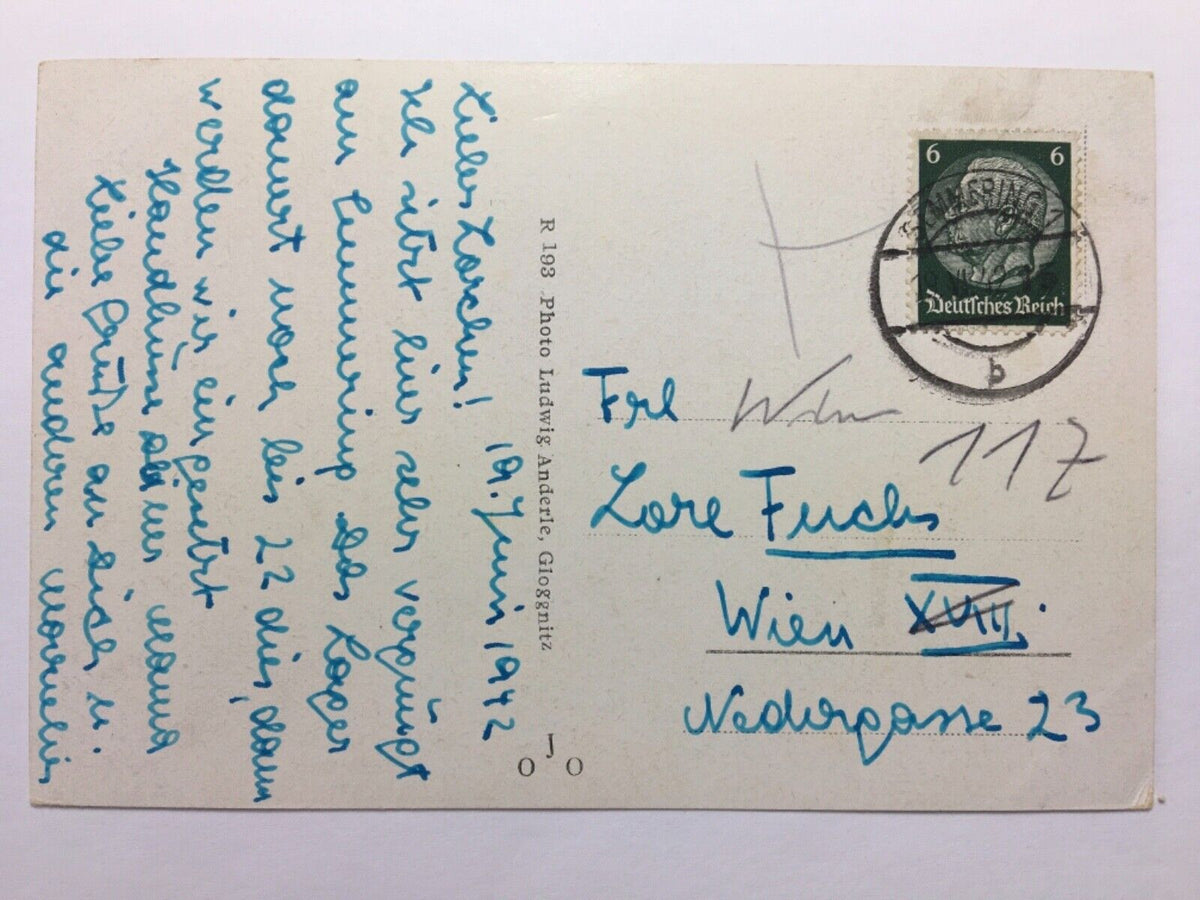 Liebes Lorchen! 19. Juni 1942
Ich sitze hier sehr vergnügt
am Semmering das Lager
dauert noch bis 22 dies, dann
werden wir eingesetzt
Handküsse an
Liebe Grüße an Dich u.
die anderen
R 193 Photo Ludwig Anderle, Gloggnitz
6 6
Deutsches Reich
SEMMERING 1
b
Frl
Wien
117
Lore Fuchs
Wien XVIII.
Nedergasse 23